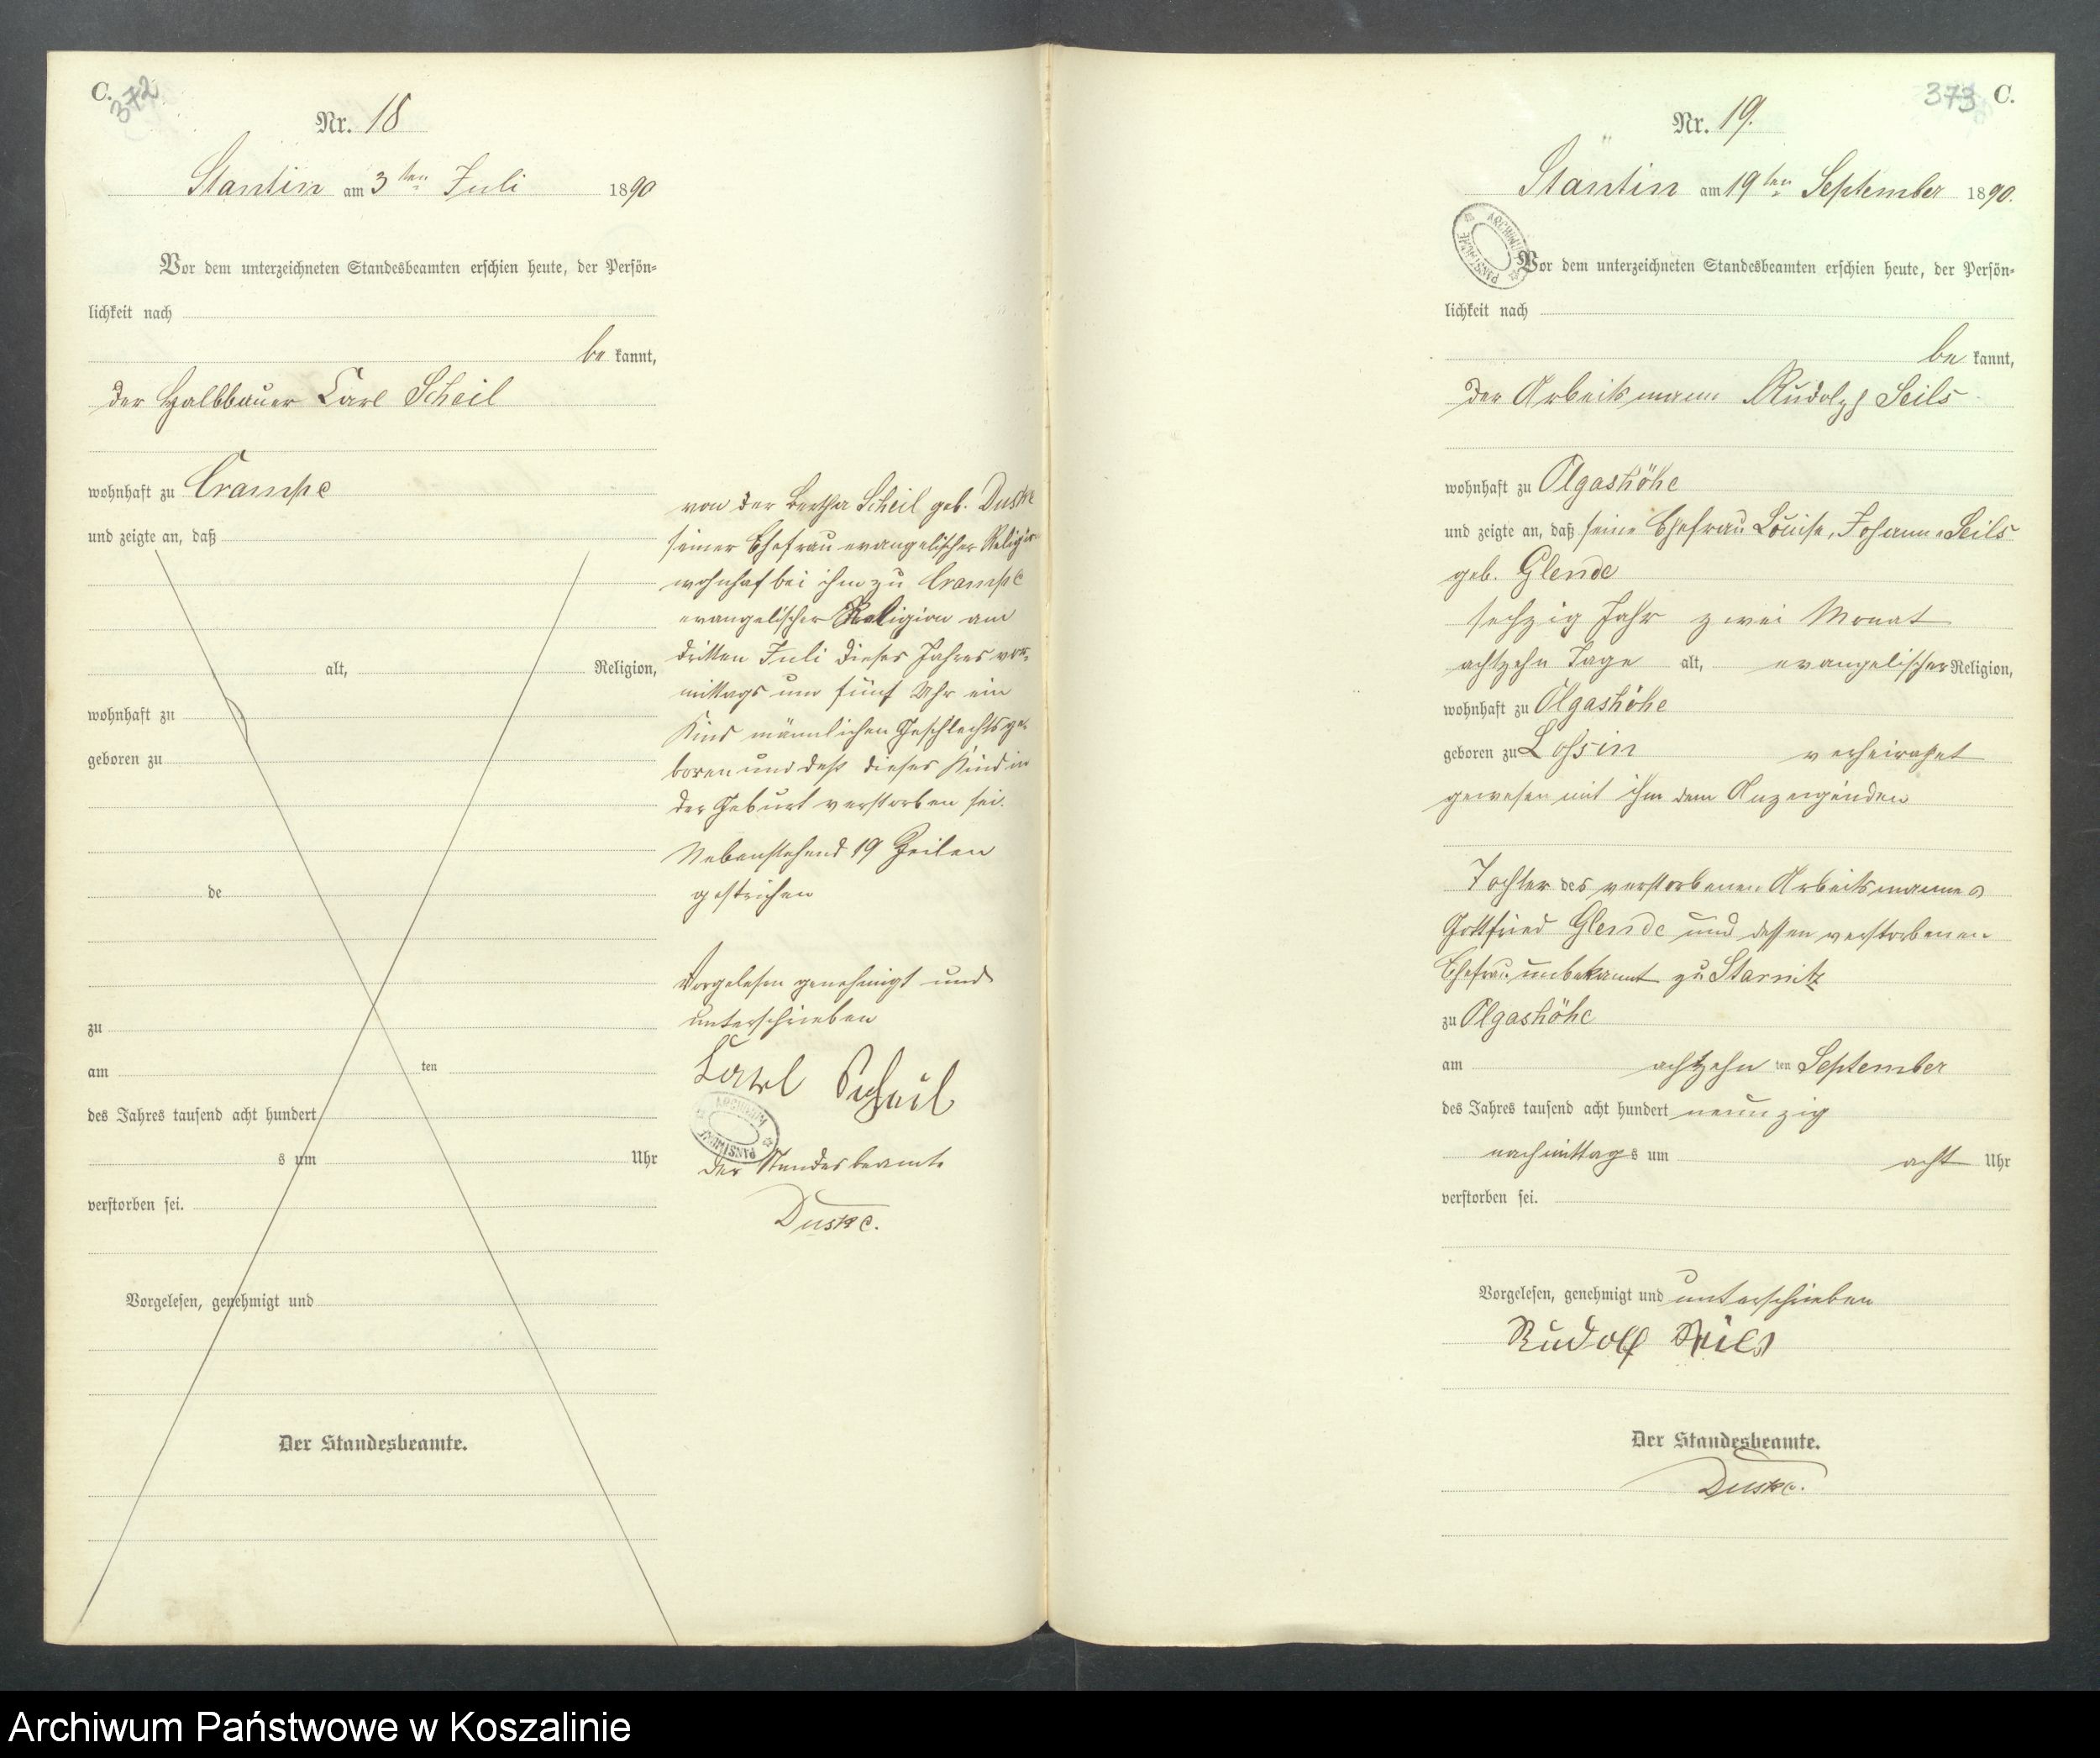 C.
372
Nr. 18
Stantin am 3ten Juli 1890
Vor dem unterzeichneten Standesbeamten erschien heute, der Persön-
lichkeit nach
be kannt,
der Halbbauer Carl Scheil
wohnhaft zu Crampe
und zeigte an, daß
alt, Religion,
wohnhaft zu
geboren zu
de
zu
am ten
des Jahres tausend acht hundert
s um Uhr
verstorben sei.
Vorgelesen, genehmigt und
Der Standesbeamte.
von der Bertha Scheil geb. Duske
seiner Ehefrau evangelischer Religion
wohnhaf bei ihm zu Crampe
evangelischer Religion am
dritten Juli dieses Jahres vor-
mittags um fünf Uhr ein
Kind männlichen Geschlechts ge-
boren und daß dieses Kind in
der Geburt verstorben sei.
Nebenstehend 19 Zeilen
gestrichen
Vorgelesen genehmigt und
unterschrieben
Karl Scheil
ARCHIWUM PAŃSTWOWE
der Standesbeamte
Duske.
373 C.
Nr. 19.
Stantin am 19ten September 1890.
ARCHIWUM PAŃSTWOWE
Vor dem unterzeichneten Standesbeamten erschien heute, der Persön-
lichkeit nach
be kannt,
der Arbeitsmann Rudolph Seils
wohnhaft zu Olgashöhe
und zeigte an, daß seine Ehefrau Louise, Johanne Seils
geb. Glende
sechzig Jahr zwei Monat
achtzehn Tage alt, evangelischer Religion,
wohnhaft zu Olgashöhe
geboren zu Lossin verheirathet
gewesen mit ihm dem Anzeigenden
Tochter des verstorbenen Arbeitsmannes
Gottfried Glende und dessen verstorbenen
Ehefrau unbekannt zu Starnitz
zu Olgashöhe
am achtzehn ten September
des Jahres tausend acht hundert neunzig
nachmittags um acht Uhr
verstorben sei.
Vorgelesen, genehmigt und unterschrieben
Rudolf Seils
Der Standesbeamte.
Duske.
Archiwum Państwowe w Koszalinie